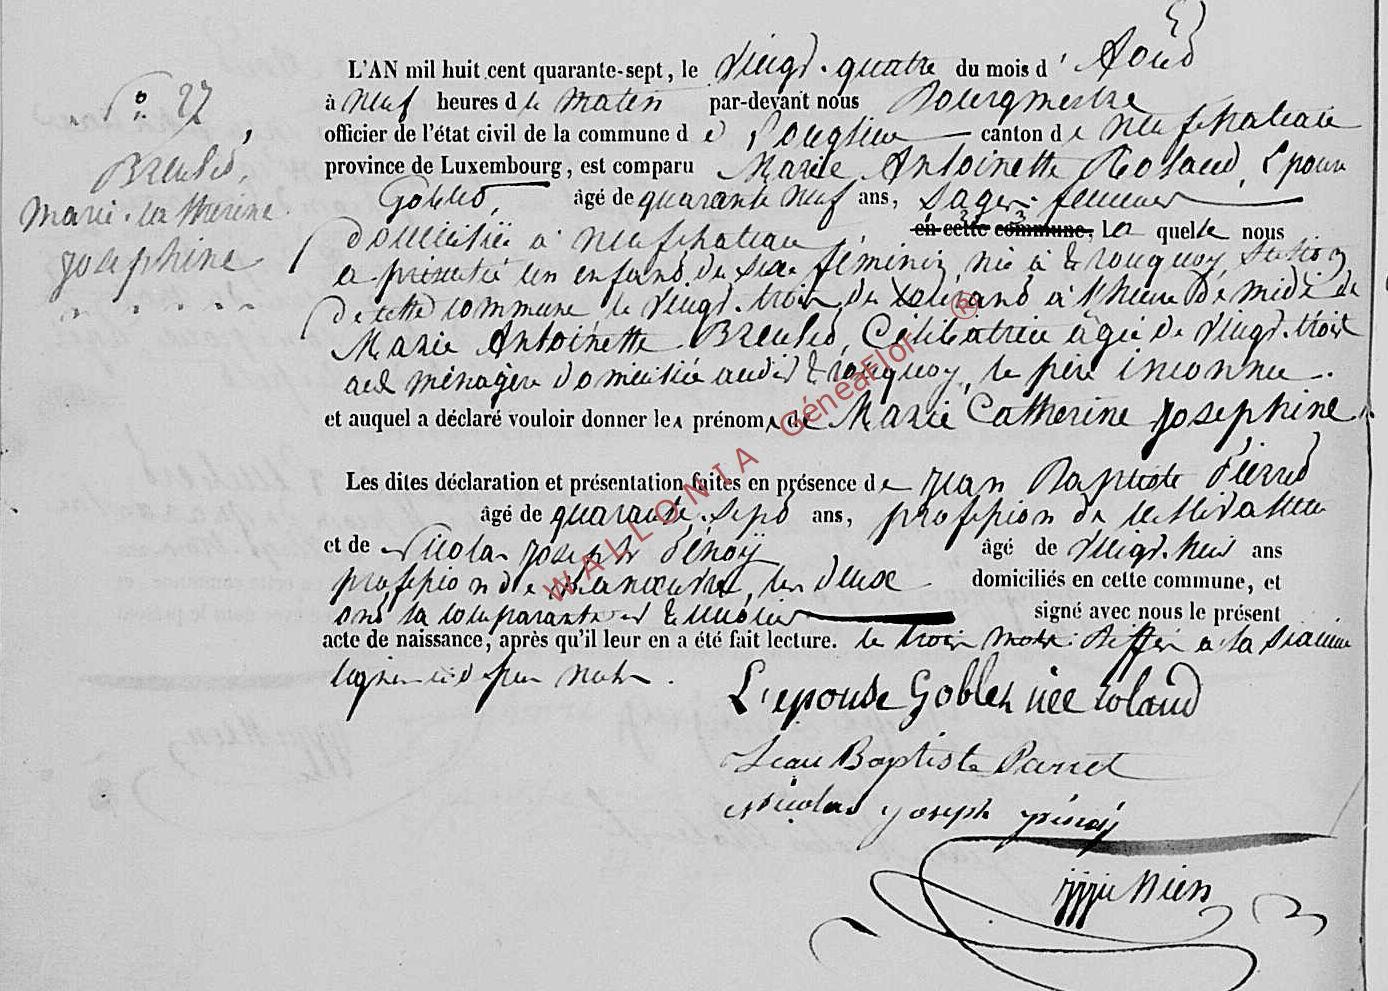 N° 27
Breulet,
Marie-Catherine
Josephine
L'AN mil huit cent quarante-sept, le Vingt-quatre du mois d' Aout
à Neuf heures d u Matin par-devant nous Bourgmestre
officier de l'état civil de la commune d e Longlier canton d e Neufchateau
province de Luxembourg, est comparu Marie Antoinette Roland, Epouse
Goblet, âgé de quarante neuf ans, Sage-femme
en cette commune, la quelle nous
domiciliée à Neufchateau
a présenté un enfant du sexe féminin, né à Tronquoy, Section
de cette commune le Vingt-trois du courant à l'heure de midi de
Marie Antoinette Breulet, Célibataire âgée de Vingt-trois
ans ménagère domiciliée audit Tronquoy, le père inconnu.
et auquel a déclaré vouloir donner les prénoms de Marie Catherine Josephine.
Les dites déclaration et présentation faites en présence de Jean Baptiste Pierret
âgé de quarante-sept ans, profession de cultivateur
et de Nicolas Joseph Pénoÿ âgé de Vingt-huit ans
profession de Manœuvre, les deux domiciliés en cette commune, et
ont la comparante et témoins signé avec nous le présent
acte de naissance, après qu'il leur en a été fait lecture. le trois mots
L'epouse Goblet née roland
Jean Baptiste Parret
Nicolas Joseph pénoÿ
WALLONIA GénéaFlor ®